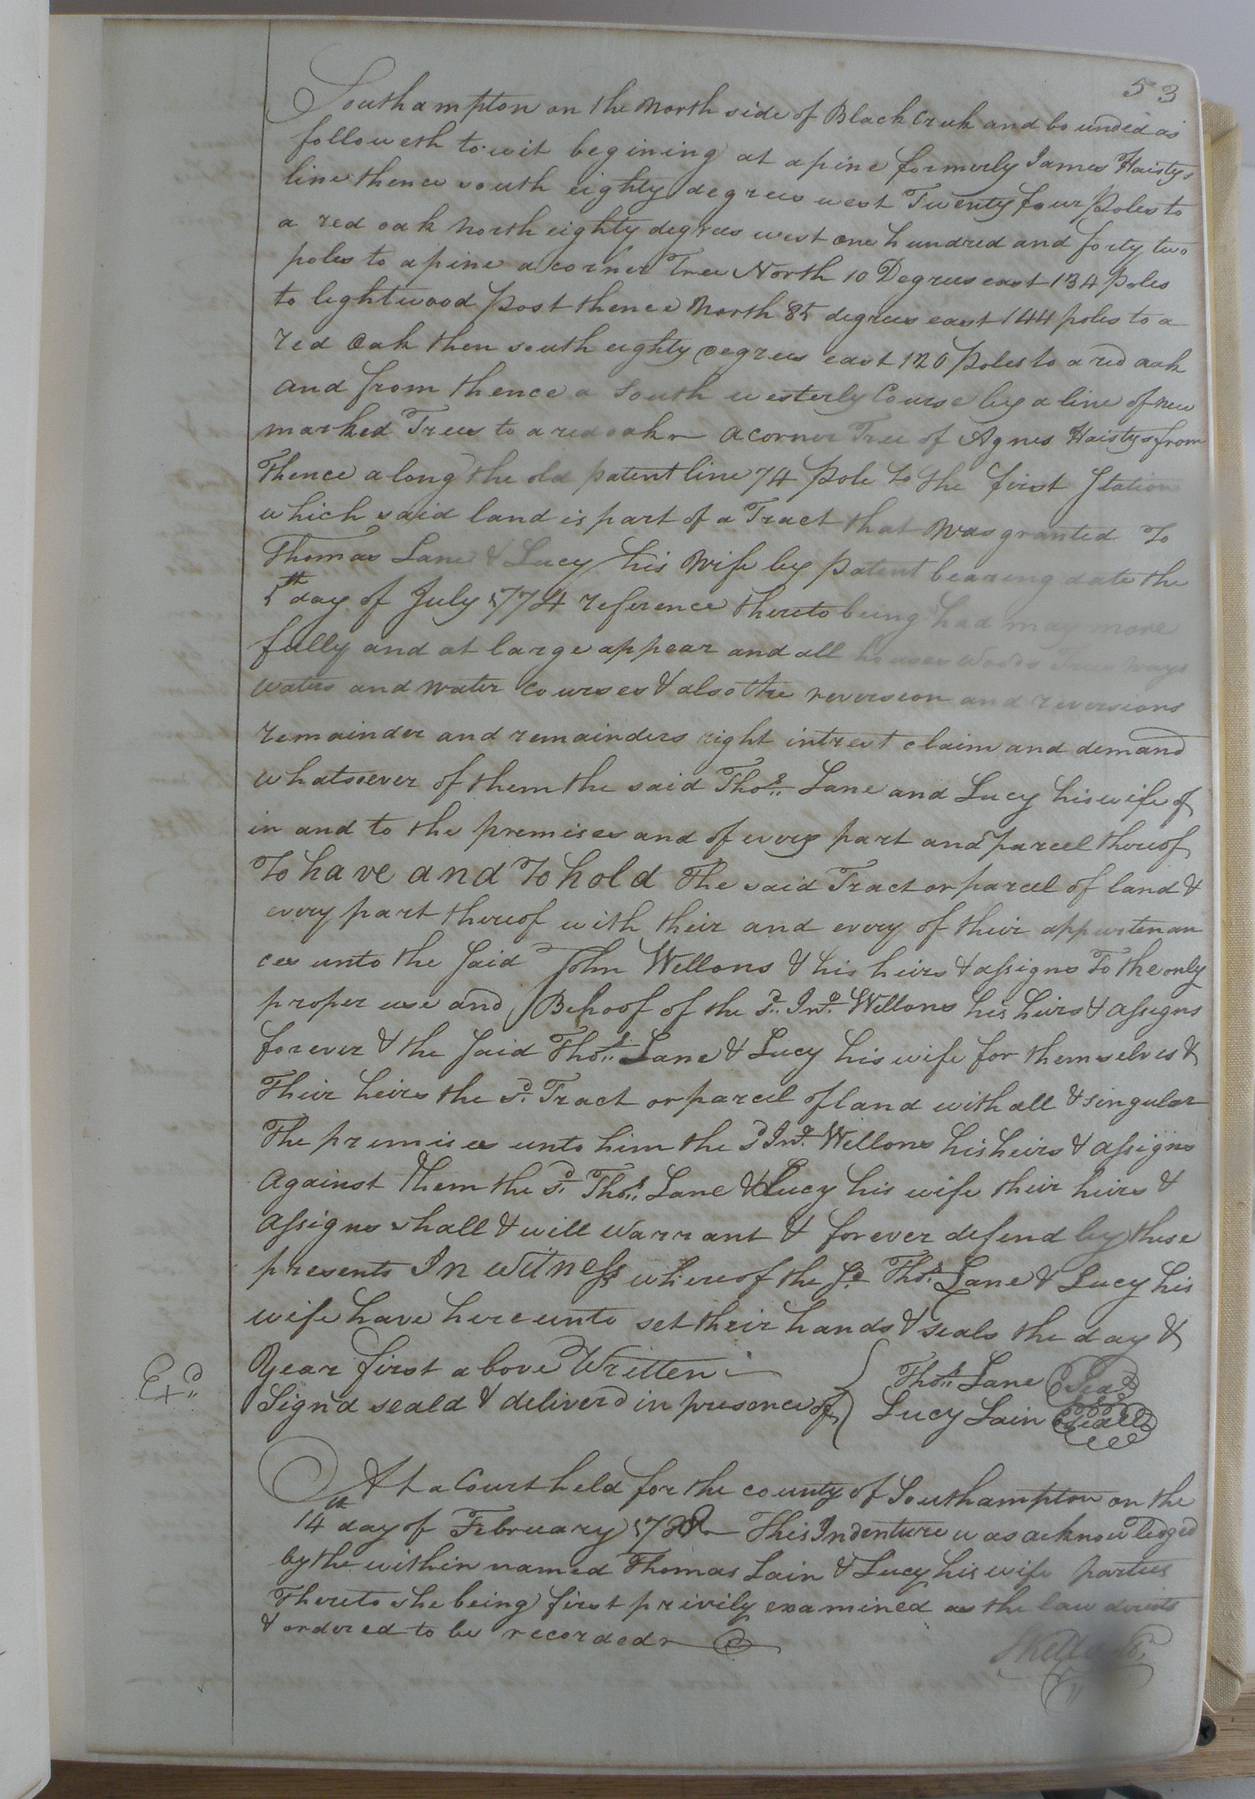 53
Southampton on the North side of Black Creek and bounded as
followeth to wit begining at a pine formerly James Haistys
line thence south eighty degrees west Twenty four poles to
a red oak North eighty degrees west one hundred and forty two
poles to a pine a corner Tree North 10 Degrees east 134 poles
to lightwood post thence North 85 degrees east 144 poles to a
red oak then south eighty degrees east 120 poles to a red oak
and from thence a South westerly Course by a line of new
marked Trees to a red oak a corner Tree of Agnes Haistys from
Thence along the old patent line 74 pole to the first Station
which said land is part of a Tract that was granted To
Thomas Lane & Lucy his Wife by patent bearing date the
5th day of July 1774 reference thereto being had may more
fully and at large appear and all houses Woods ways
waters and water courses & also the reversion and reversions
remainder and remainders right intrest claim and demand
whatsoever of them the said Thos. Lane and Lucy his wife of
in and to the premises and of every part and parcel thereof
To have and To hold the said Tract or parcel of land &
every part thereof with their and every of their appurtenan
ces unto the said John Wellons & his heirs & assigns To the only
proper use and Behoof of the sd. Jno. Wellons his heirs & assigns
forever & the said Thos. Lane & Lucy his wife for themselves &
Their heirs the sd. Tract or parcel of land with all & singular
the premises unto him the sd Jno. Wellons his heirs & assigns
against them the sd. Thos. Lane & Lucy his wife their heirs &
assigns shall & will warrant & forever defend by these
presents In witness whereof the sd Thos. Lane & Lucy his
wife have hereunto set their hands & seals the day &
Year first above Written
Thos. Lane Seal
Signd seald & deliverd in presence of
Lucy Lain Seal
Exd
At a Court held for the county of Southampton on the
14th day of February This Indenture was acknowledged
by the within named Thomas Lain & Lucy his wife parties
Thereto she being first privily examined as the law directs
& ordered to be recorded